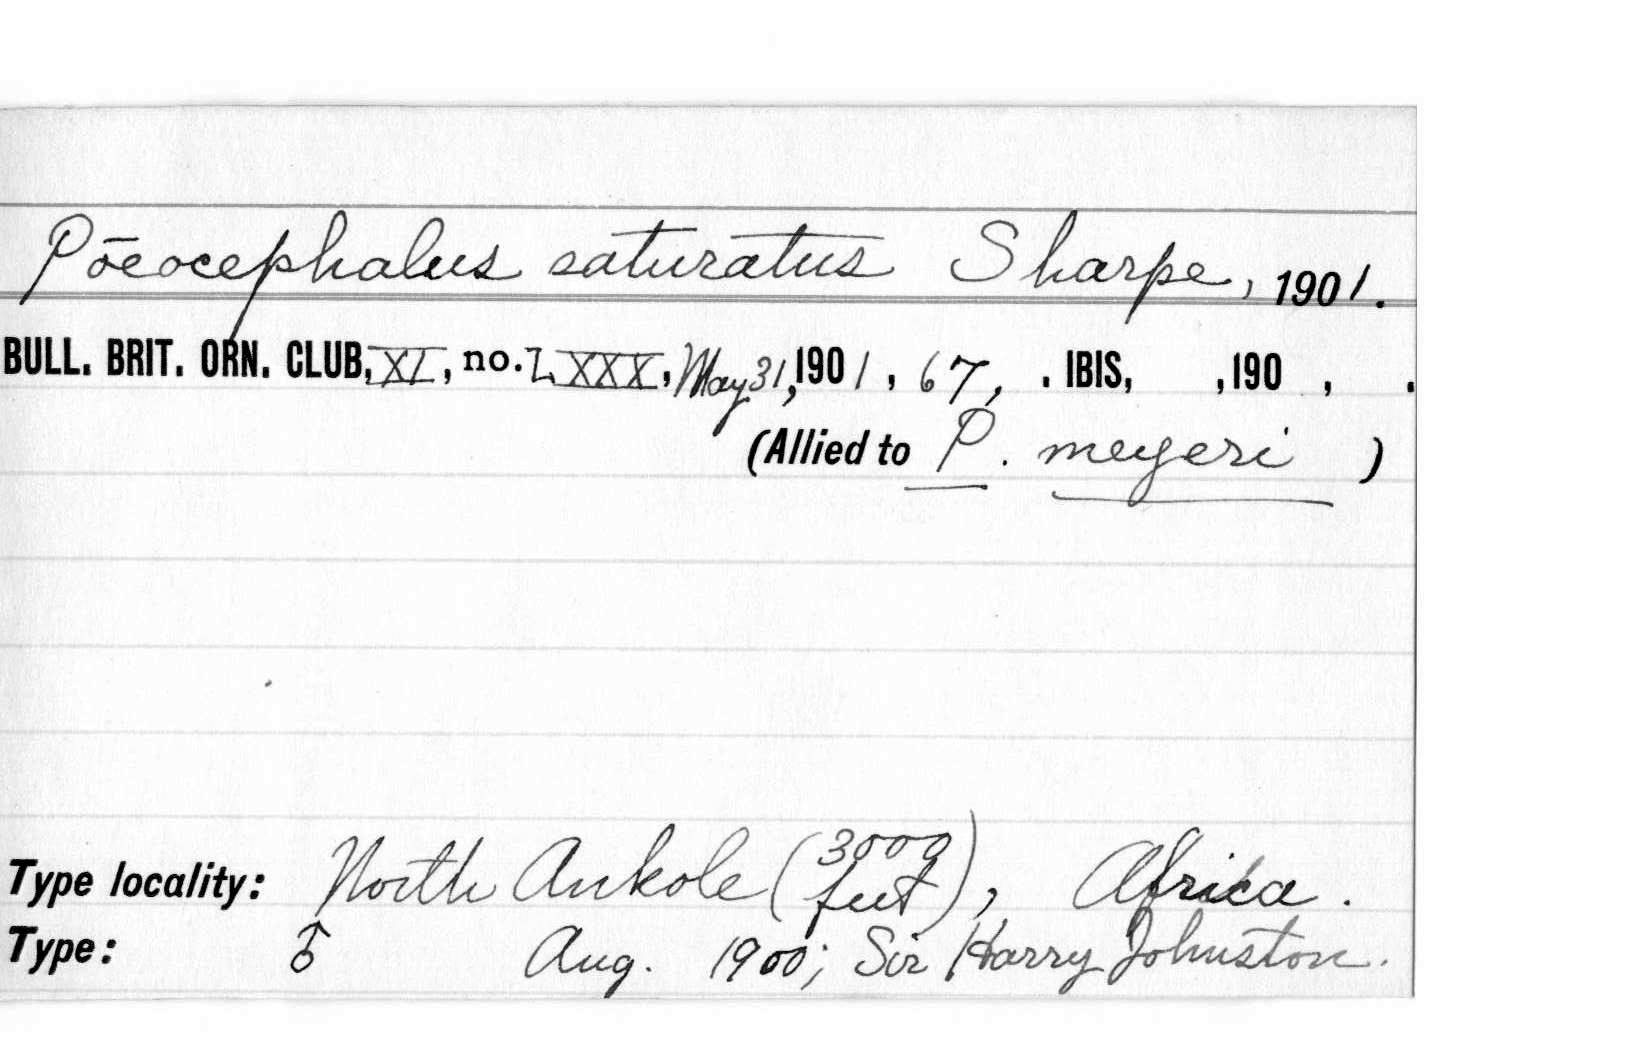 Pōeocephalus saturatus Sharpe, 1901.
BULL. BRIT. ORN. CLUB, XI, no. LXXX, May 31, 1901, 67, . IBIS, , 190 , .
(Allied to P. meyeri )
Type locality: North Ankole (3000 feet), Africa.
Type: ♂ Aug. 1900; Sir Harry Johnston.